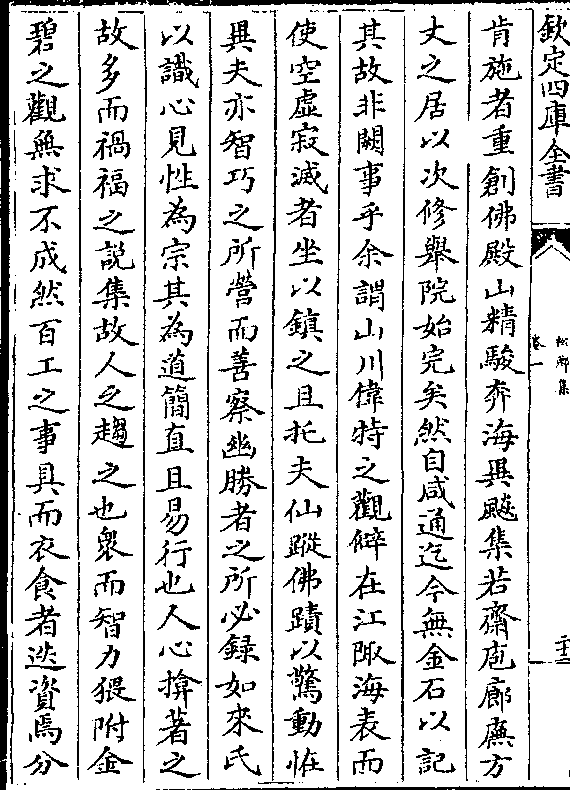 欽定四庫全書
松鄉集
卷一
二十三
肯施者重創佛殿山精駿奔海異飈集若齋庖廊廡方
丈之居以次修舉院始完矣然自咸通迄今無金石以記
其故非闕事乎余謂山川偉特之觀僻在江陬海表而
使空虛寂滅者坐以鎮之且托夫仙蹤佛蹟以驚動恠
異夫亦智巧之所營而善察幽勝者之所必錄如來氏
以識心見性為宗其為道簡直且易行也人心揜著之
故多而禍福之說集故人之趨之也衆而智力猥附金
碧之觀無求不成然百工之事具而衣食者迭資焉分